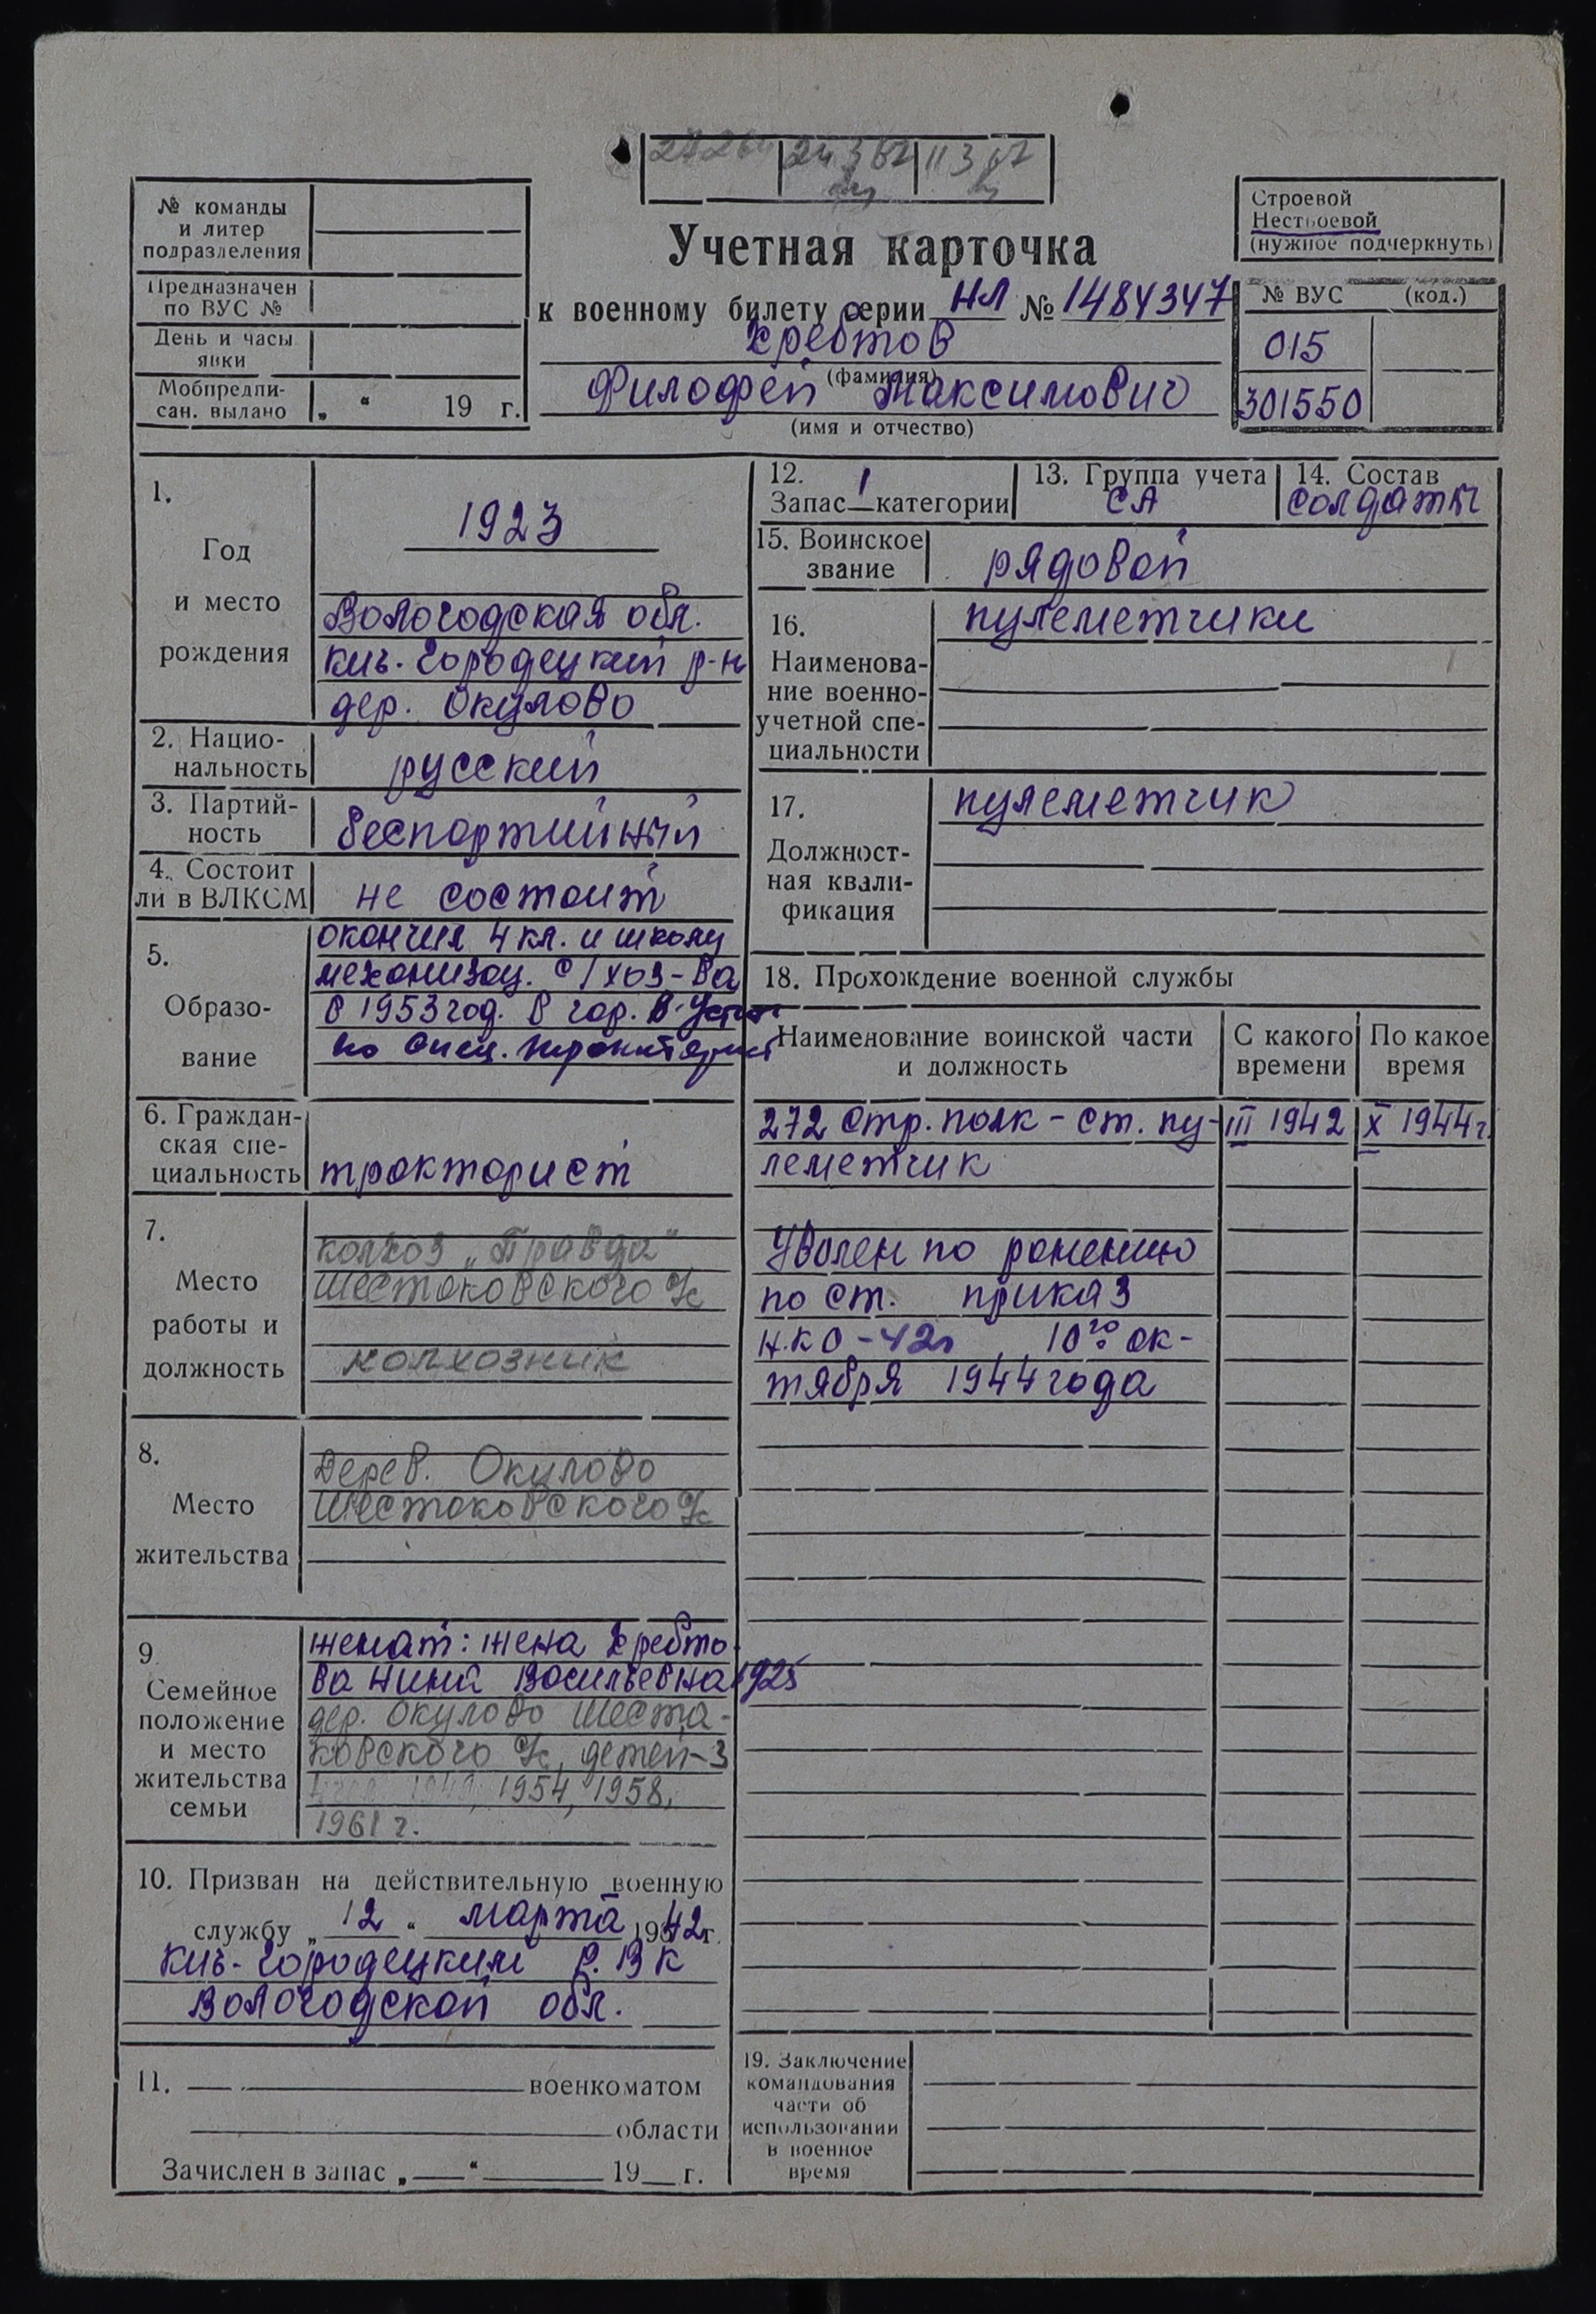 24 3 67 11 3 67
№ команды
и литер
подразделения
Предназначен
по ВУС №
День и часы
явки
Мобпредпи-
сан. выдано „ “ 19 г.
Учетная карточка
к военному билету серии НЛ № 1484347
Хребтов
(фамилия)
Филофей Максимович
(имя и отчество)
Строевой
Нестроевой
(нужное подчеркнуть)
№ ВУС (код.)
015
301550
1.
Год
и место
рождения
1923
Вологодская обл.
Кич-Городецкий р-н
дер. Окулово
2. Нацио-
нальность
русский
3. Партий-
ность
беспартийный
4. Состоит
ли в ВЛКСМ
не состоит
5.
Образо-
вание
окончил 4 кл. и школу
механизац. с/хоз-ва
в 1953 год. в гор. В-Устюг
по спец. тракторист
6. Граждан-
ская спе-
циальность
тракторист
7.
Место
работы и
должность
колхоз „Правда“
Шестаковского с/с
колхозник
8.
Место
жительства
Дерев. Окулово
Шестаковского с/с
9.
Семейное
положение
и место
жительства
семьи
женат: жена Хребто-
ва Нина Васильевна 1925
дер. Окулово Шеста-
ковского с/с, детей-3
1949, 1954, 1958,
1961 г.
10. Призван на действительную военную
службу „12“ марта 1942 г.
Кич-Городецким Р.В К
Вологодской обл.
11. военкоматом
области
Зачислен в запас „ “ 19 г.
12.
Запас 1 категории
13. Группа учета
СА
14. Состав
солдаты
15. Воинское
звание
рядовой
16.
Наименова-
ние военно-
учетной спе-
циальности
пулеметчики
17.
Должност-
ная квали-
фикация
пулеметчик
18. Прохождение военной службы
Наименование воинской части
и должность
С какого
времени
По какое
время
272 стр. полк - ст. пу- III 1942 X 1944 г.
леметчик
Уволен по ранению
по ст. приказ
Н.К О -42г 10го ок-
тября 1944 года
19. Заключение
командования
части об
использовании
в военное
время